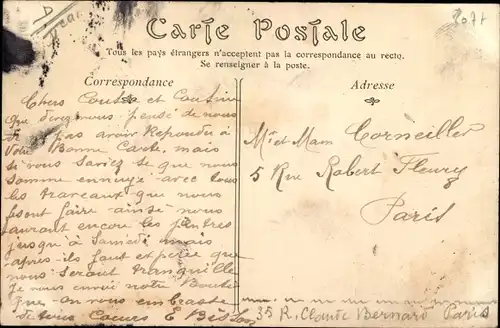 Carte Postale
Tous les pays étrangers n'acceptent pas la correspondance au recto.
Se renseigner à la poste.
Correspondance
Chers Cousin et Cousine
Que direz vous pensé de nous
de pas avoir Repondre à
Votre Bonne Carte, mais
si vous Saviez se que nous
Somme ennuyé avec tous
les traveaux que nous
font faire ainsé nous
auront encore les peintres
jusqu'à Samedi mais
après ils faut espérée que
nous Seront tranquille
Je nous envoi notre
que on vous embrasse
de tous Coeurs E
Adresse
Mr et Mam Corneiller
5 Rue Robert Fleury
Paris
35 R. Claude Bernard Paris